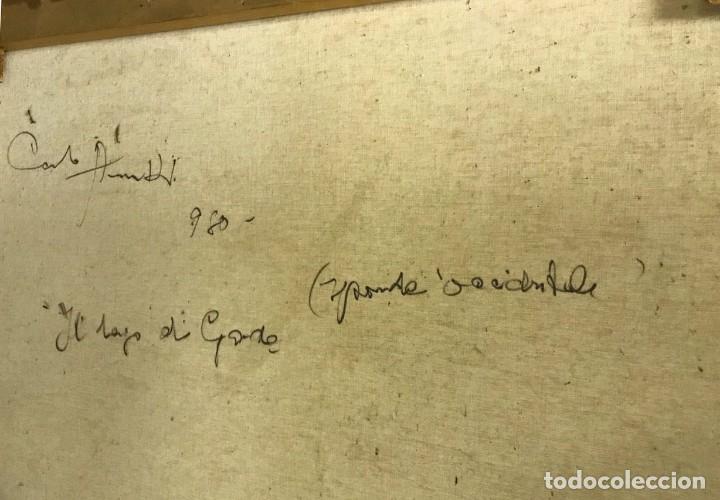 Carlo
980 -
(sponda occidentale)
"Il lago di Garda
todocoleccion